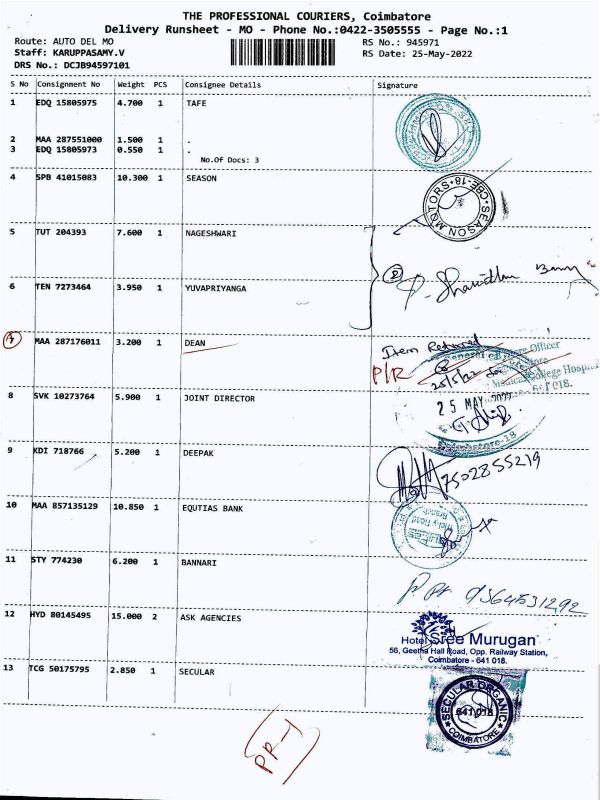 THE PROFESSIONAL COURIERS, Coimbatore
Delivery Runsheet - MO - Phone No.:0422-3505555 - Page No.:1
Route: AUTO DEL MO
RS No.: 945971
Staff: KARUPPASAMY.V
RS Date: 25-May-2022
DRS No.: DCJB94597101
S No Consignment No Weight PCS Consignee Details Signature
1 EDQ 15805975 4.700 1 TAFE
2 MAA 287551000 1.500 1 .
3 EDQ 15805973 0.550 1 .
No.Of Docs: 3
4 SPB 41015083 10.300 1 SEASON
SEASON MOTORS CBE-18
5 TUT 204393 7.600 1 NAGESHWARI
6 TEN 7273464 3.950 1 YUVAPRIYANGA
7 MAA 287176011 3.200 1 DEAN
Item Returned
P/R
25/5/22
Store Officer
Medical College Hospital
641 018.
25 MAY 2022
Coimbatore-18
8 SVK 10273764 5.900 1 JOINT DIRECTOR
9 KDI 718766 5.200 1 DEEPAK
7502855219
10 MAA 857135129 10.850 1 EQUTIAS BANK
Trichy Road
Branch
11 STY 774230 6.200 1 BANNARI
9364531292
12 HYD 80145495 15.000 2 ASK AGENCIES
Hotel Sree Murugan
56, Geetha Hall Road, Opp. Railway Station,
Coimbatore - 641 018.
13 TCG 50175795 2.850 1 SECULAR
SECULAR ORGANIC
641 018
COIMBATORE
PR-1